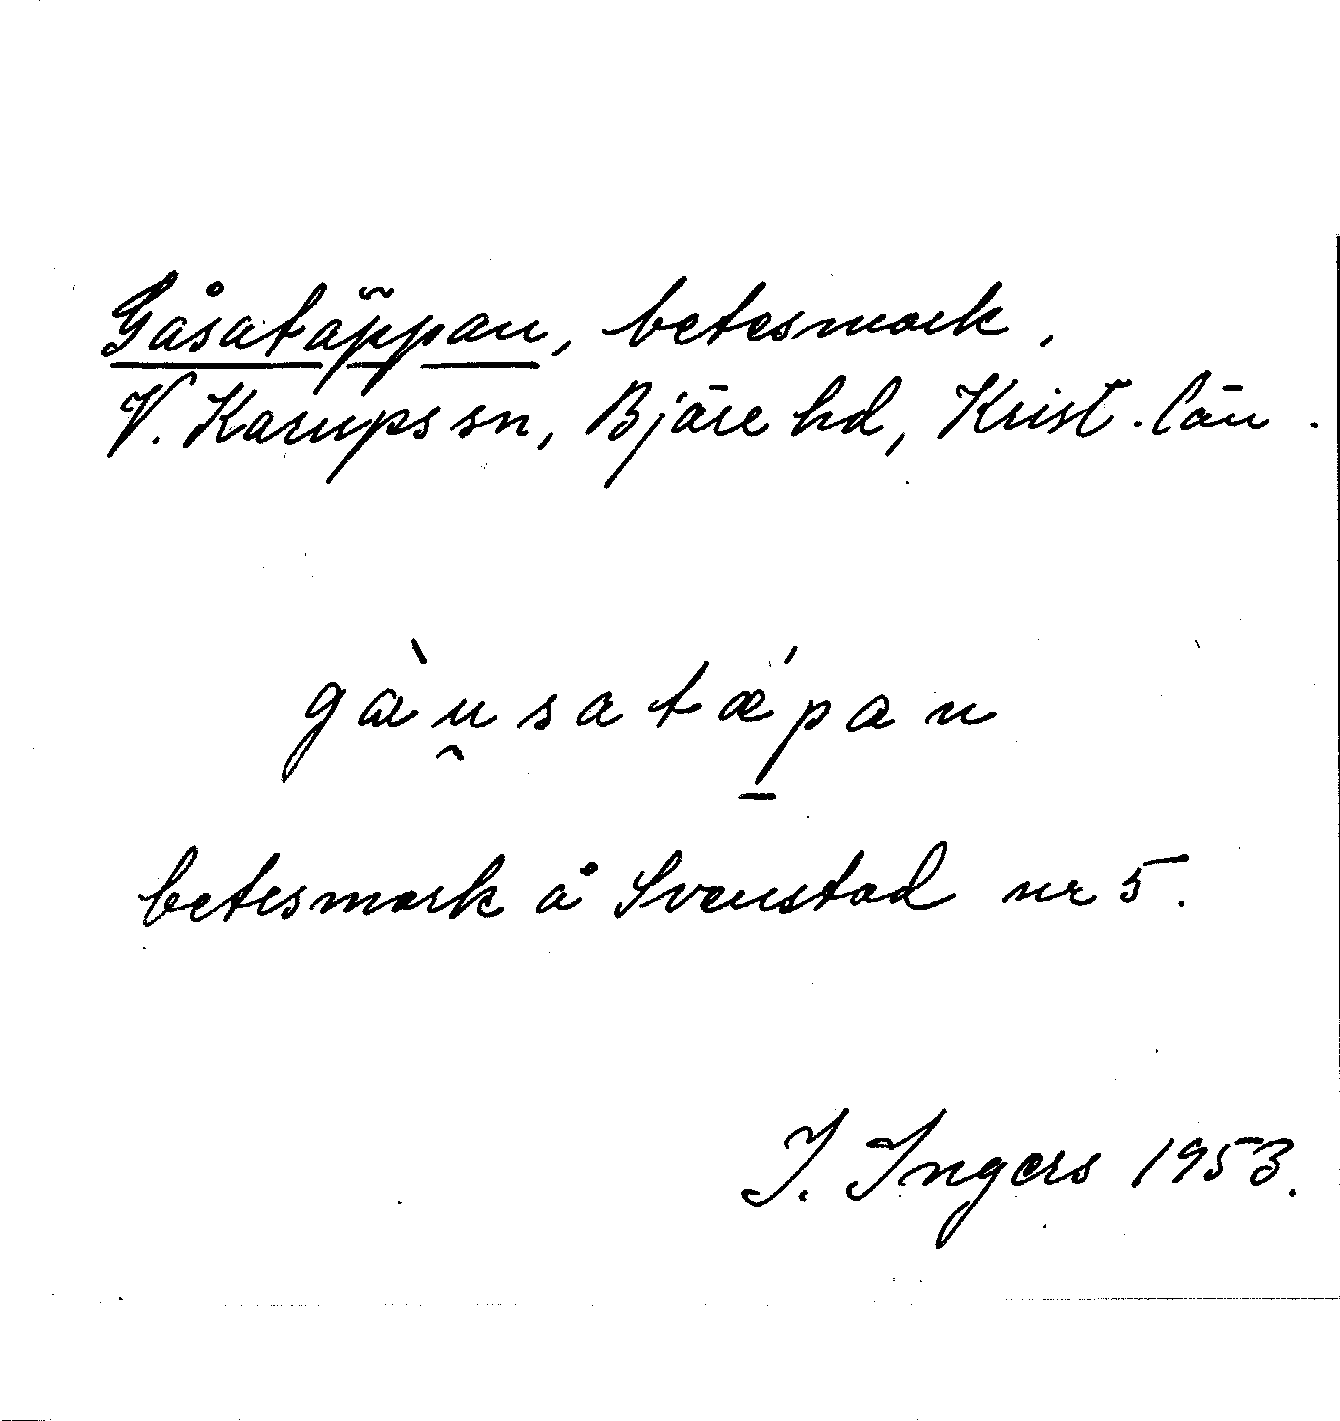 Gåsatäppan, betesmark.
V. Karups sn, Bjäre hd, Krist. län.
gàu̯satǽp̱an
betesmark å Svenstad nr 5.
I. Ingers 1953.